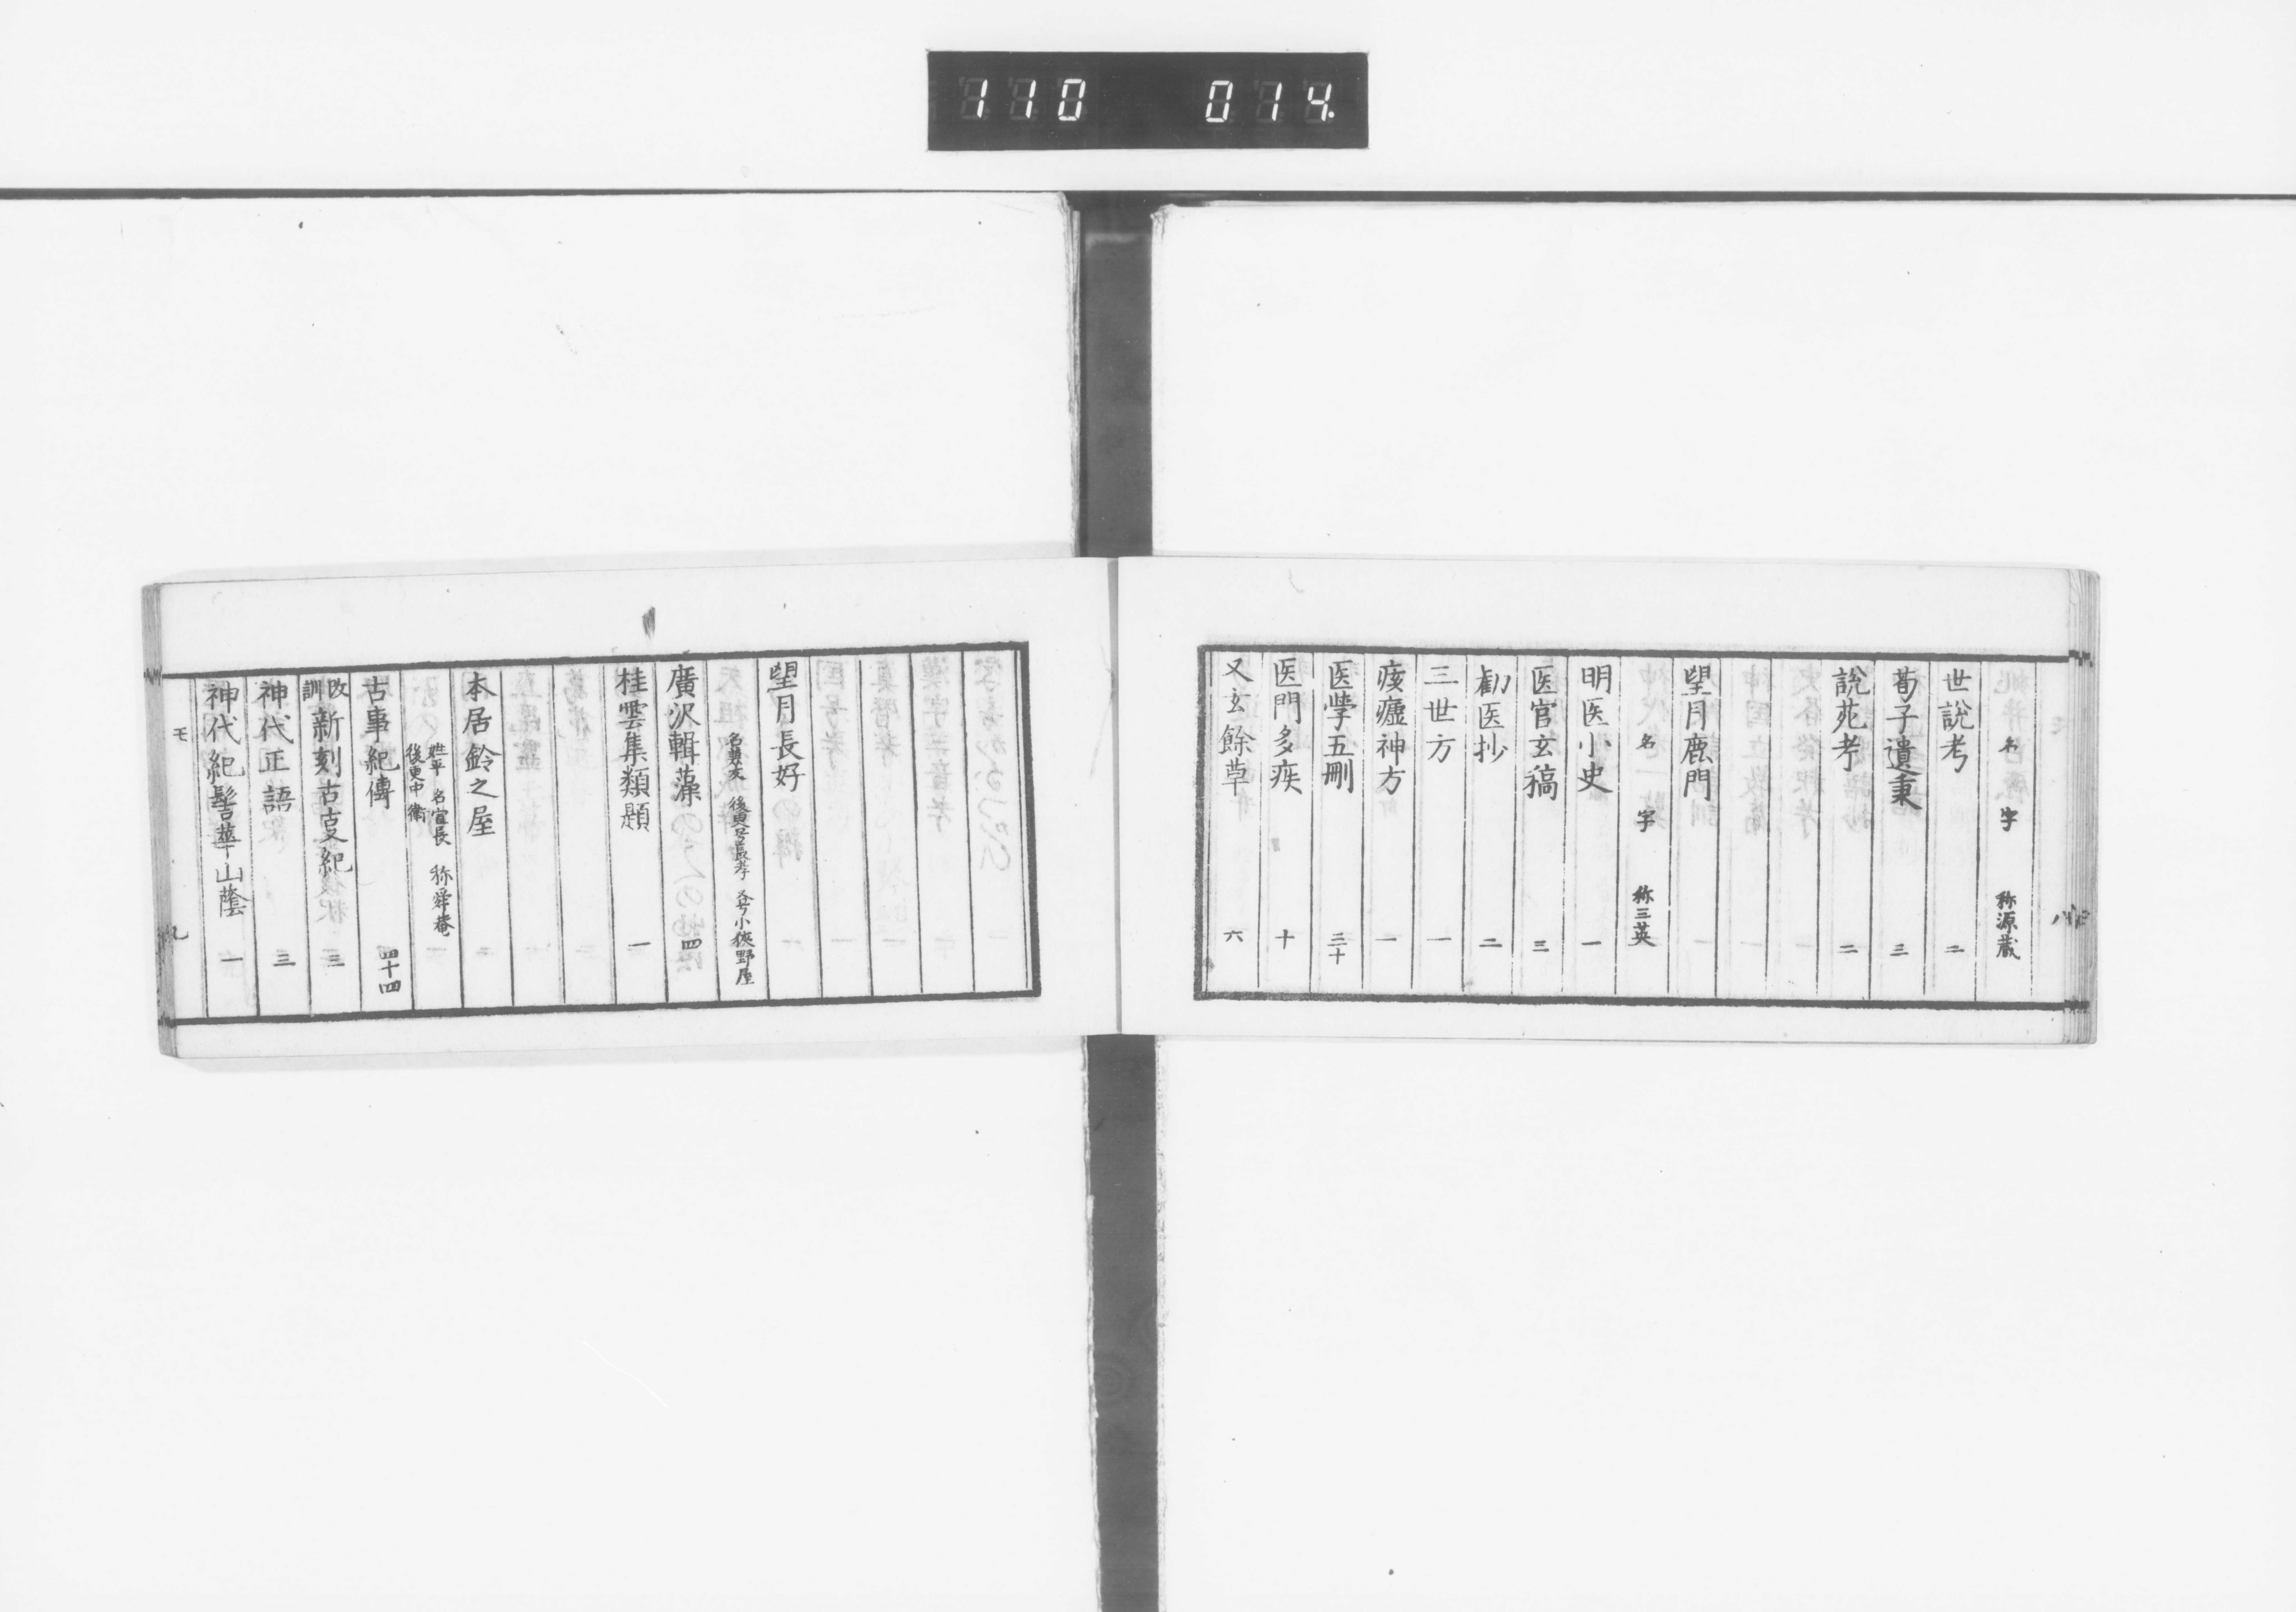 110 014
名 字 称源蔵
世說考 二
荀子遺秉 三
說苑考 二
望月鹿門
名 字 称三英
明医小史 一
医官玄稿 三
勧医抄 二
三世方 一
痎瘧神方 一
医學五刪 三十
医門多疾 十
又玄餘草 六
望月長好
後更号長孝 又号小狭野屋
廣沢輯藻 四
桂雲集類題 一
本居鈴之屋
姓平 名宣長 称舜菴
後更中衛
古事紀傳 四十四
改訓新刻古支紀 三
神代正語 三
神代紀髻華山蔭 一
モ 九